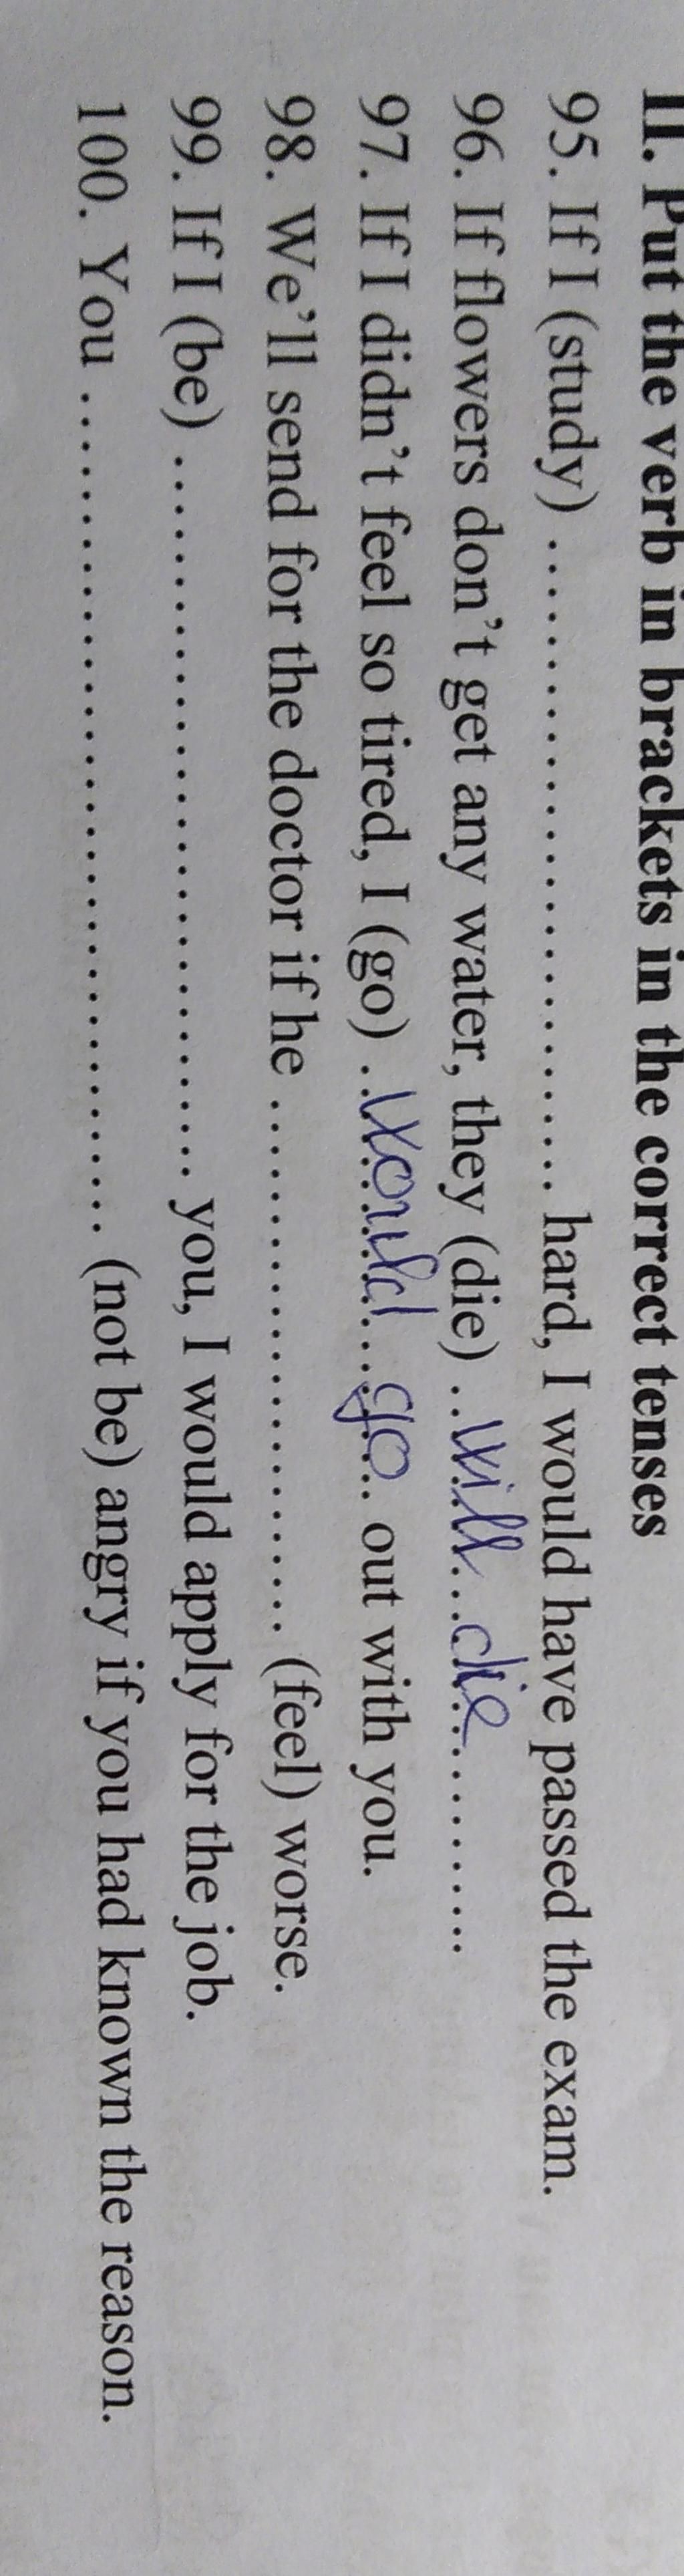 II. Put the verb in brackets in the correct tenses
95. If I (study) ........................................ hard, I would have passed the exam.
96. If flowers don't get any water, they (die) ..will...die............
97. If I didn't feel so tired, I (go) ..would...go... out with you.
98. We'll send for the doctor if he ........................................ (feel) worse.
99. If I (be) ........................................ you, I would apply for the job.
100. You ........................................ (not be) angry if you had known the reason.